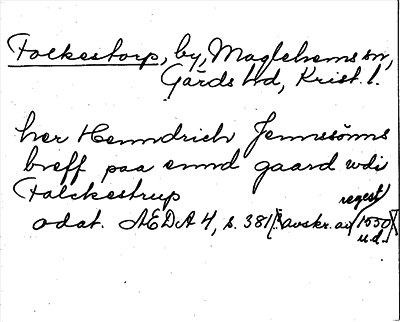 Folkestorp, by, Maglehems sn,
Gärds hd, Krist. l.
her Henndrich Jennssönns
breff paa ennd gaard wdi
Falckestrup
regest
odat. ÆDA 4, s. 381 [: avskr. av 1550
u.d.]